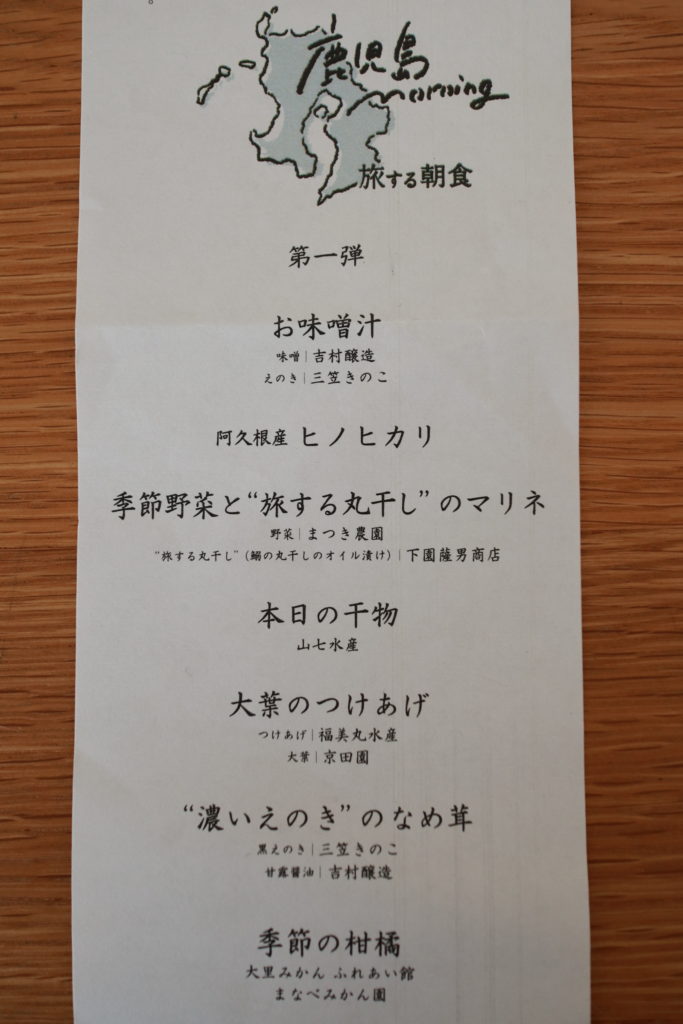 。
鹿児島
morning
旅する朝食
第一弾
お味噌汁
味噌|吉村醸造
えのき|三笠きのこ
阿久根産 ヒノヒカリ
季節野菜と“旅する丸干し”のマリネ
野菜|まつき農園
“旅する丸干し”(鰯の丸干しのオイル漬け)|下園薩男商店
本日の干物
山七水産
大葉のつけあげ
つけあげ|福美丸水産
大葉|京田園
“濃いえのき”のなめ茸
黒えのき|三笠きのこ
甘露醤油|吉村醸造
季節の柑橘
大里みかん ふれあい館
まなべみかん園